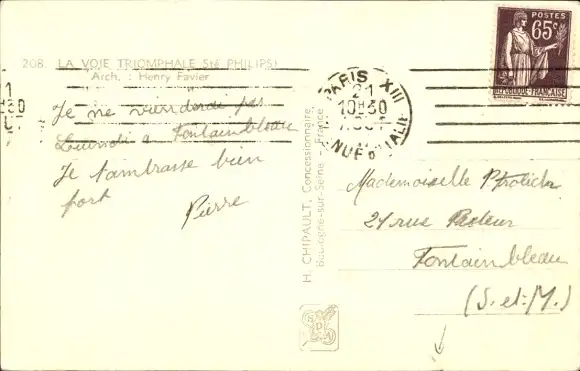 208. LA VOIE TRIOMPHALE (Sté PHILIPS)
Arch. : Henry Favier
Je ne viendrai pas
à Fontainebleau
Je t'ambrasse bien
fort
Pierre
H. CHIPAULT, Concessionnaire,
Boulogne-sur-Seine - France
PARIS XIII
21
10H30
AV. D'ITALIE
POSTES
65c
REPUBLIQUE-FRANÇAISE
Mademoiselle
24 rue Pasteur
Fontainbleau
(S.-et-M.)